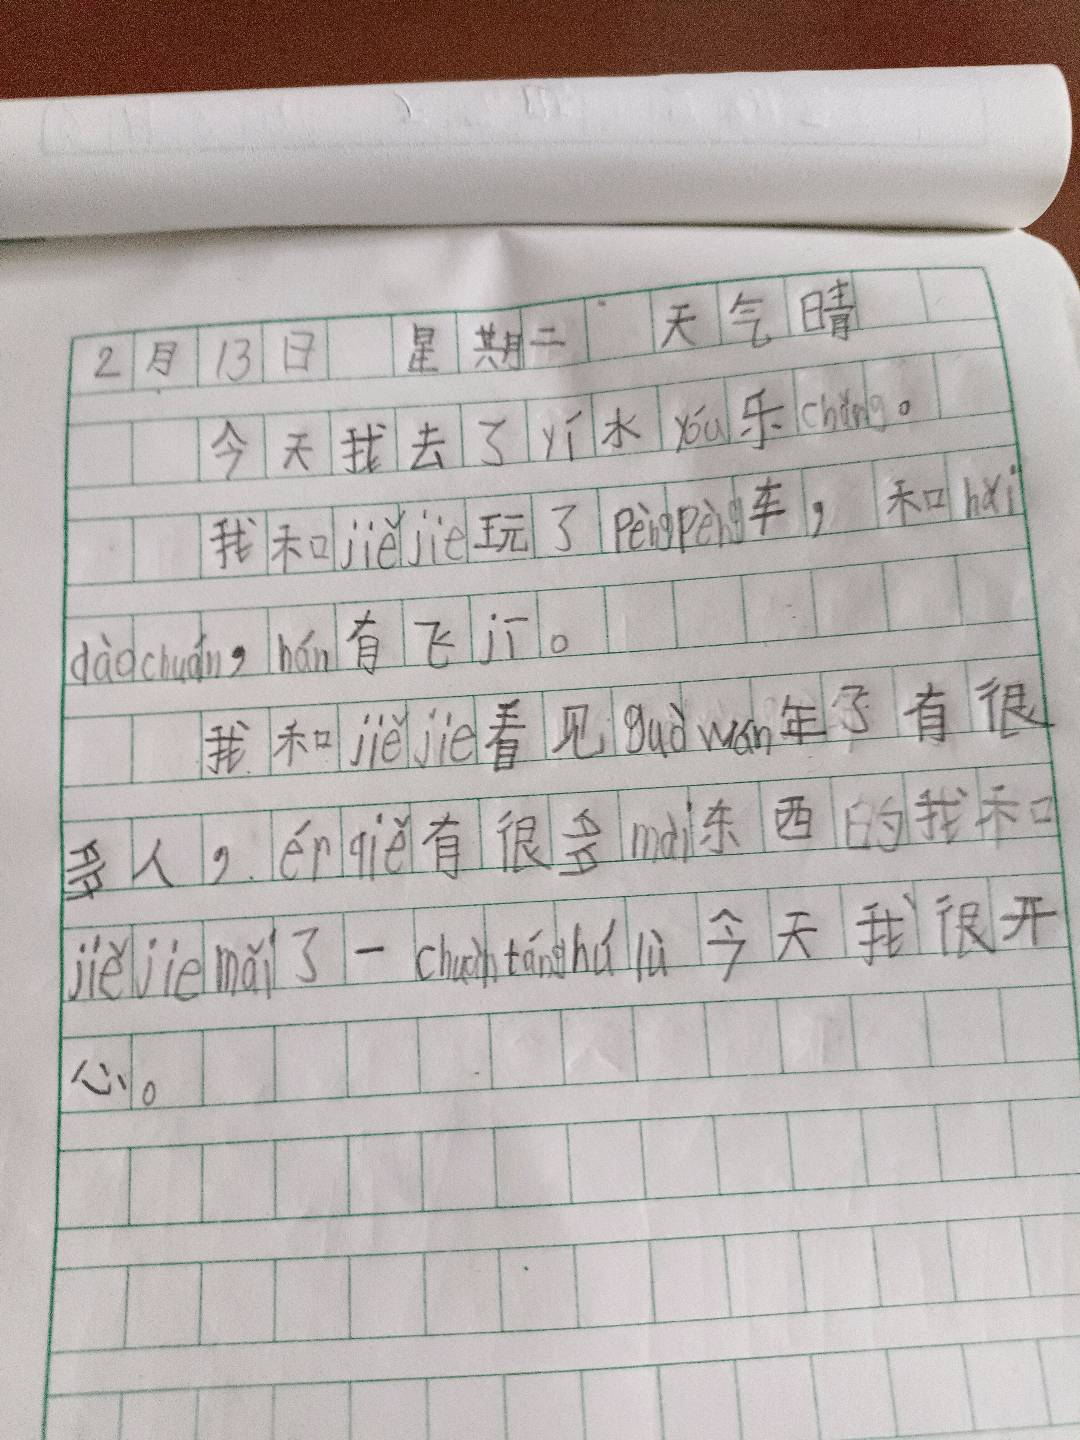 2月13日 星期二 天气晴
今天我去了yí水yóu乐chǎng。
我和jiějie玩了pèngpèng车，和hǎi
dàochuán，hán有飞jī。
我和jiějie看见guòwán年了有很
多人，érqiě有很多mài东西的我和
jiějie mǎi了一chuàntánghúlù今天我很开
心。